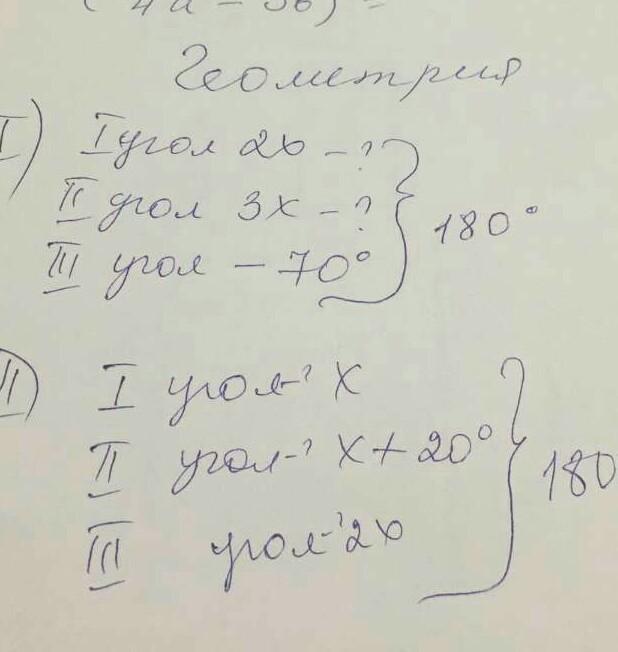 (4a - 5b) =
Геометрия
I) I угол 2x - ?
II угол 3x - ? } 180°
III угол - 70°
II) I угол - ? x
II угол - ? x + 20° } 180
III угол - ? 2x